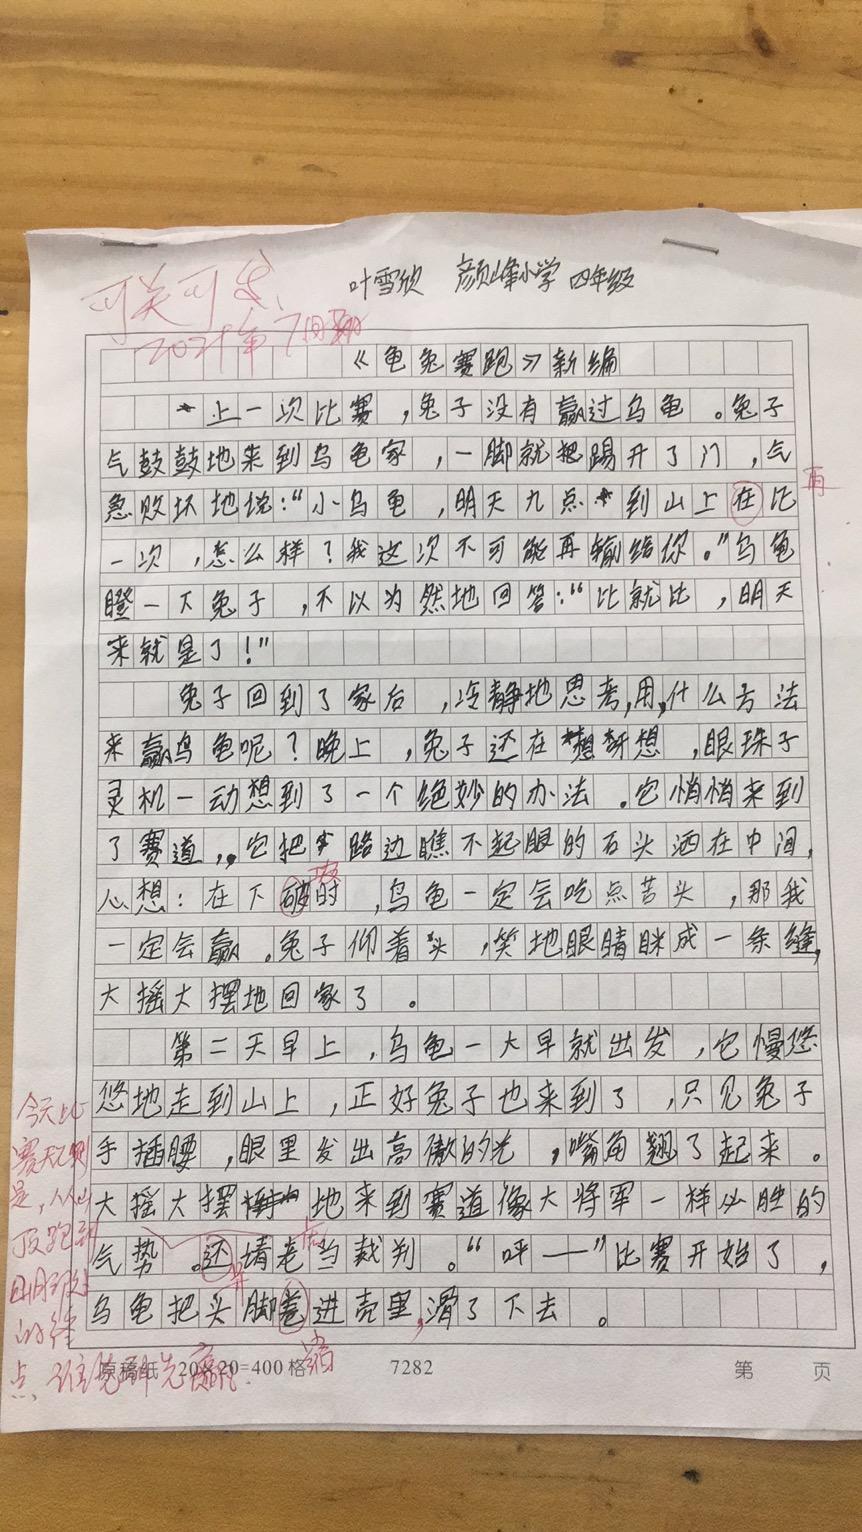 叶雪欣 颜峰小学 四年级
可关可发、
2021年7月
《龟兔赛跑》新编
上一次比赛，兔子没有赢过乌龟。兔子
气鼓鼓地来到乌龟家，一脚就把踢开了门，气
急败坏地说：“小乌龟，明天九点到山上在比
再
一次，怎么样？我这次不可能再输给你。”乌龟
瞪一下兔子，不以为然地回答：“比就比，明天
来就是了！”
兔子回到了家后，冷静地思考，用，什么方法
来赢乌龟呢？晚上，兔子还在想，眼珠子
灵机一动想到了一个绝妙的办法。它悄悄来到
了赛道，它把路边瞧不起眼的石头洒在中间，
心想：在下破时，乌龟一定会吃点苦头，那我
坡
一定会赢。兔子仰着头，笑地眼睛眯成一条缝，
大摇大摆地回家了。
第二天早上，乌龟一大早就出发，它慢悠
悠地走到山上，正好兔子也来到了，只见兔子
手插腰，眼里发出高傲的光，嘴角翘了起来。
大摇大摆地来到赛道像大将军一样必胜的
气势。还请老当裁判。“呼——”比赛开始了，
乌龟把头脚卷进壳里，滑了下去。
缩
今天比
赛规则
是，从山
顶跑到
山脚的
的终
点，谁先到谁先赢.
原稿纸 20×20=400格 7282 第 页